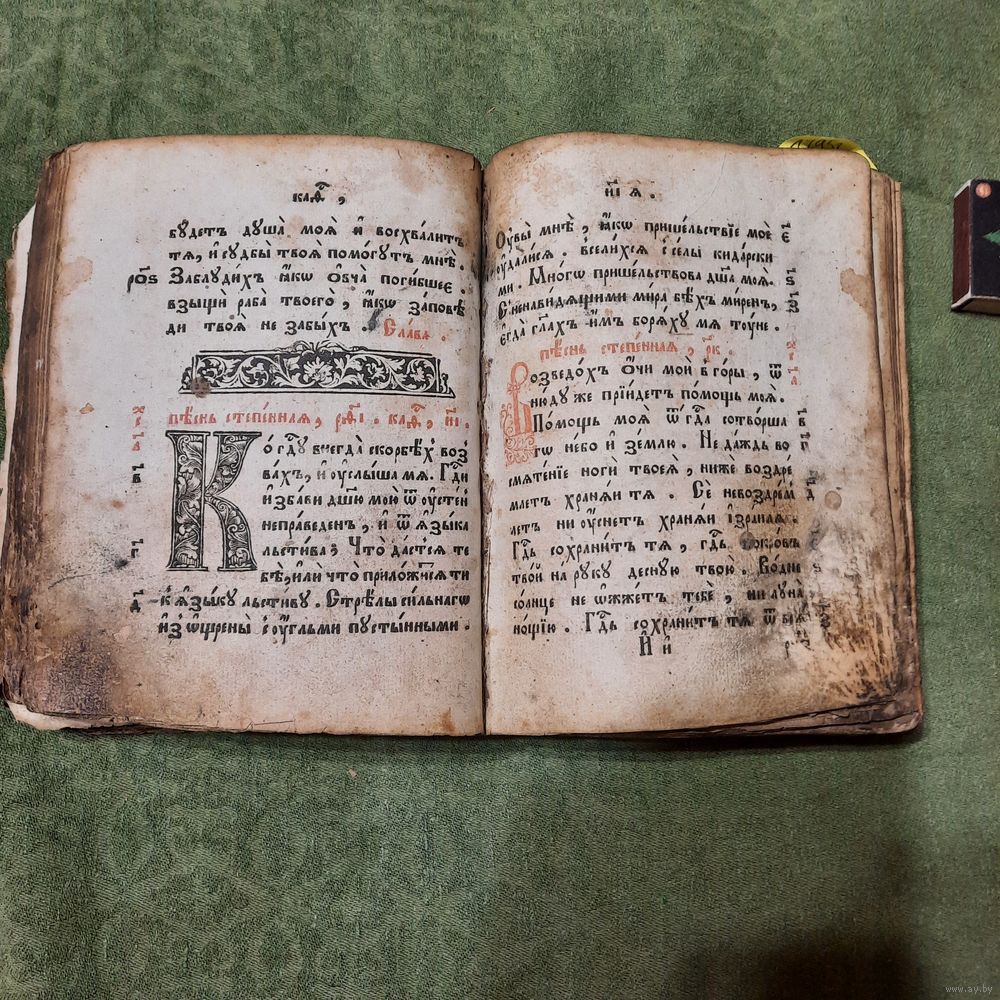 каѳ,
бꙋдетъ дꙋша̀ моѧ̀ и҆ восхвалитъ
тѧ, и҆ сꙋдбы̀ твоѧ̀ помо́гꙋтъ мнѣ̀.
роѕ Заблꙋдихъ ꙗ҆́кѡ ѻ҆вча̀ погибшее,
взыщи раба твоего̀, ꙗ҆́кѡ за́повѣ
ди твоѧ̀ не забы́хъ. Сла́ва.
пѣ́снь степе́ннаѧ, рѳі. каѳ, иі.
Ко гдꙋ внегда̀ скорбѣ́хъ воз
ва́хъ, и҆ ᲂу҆слы́ша мѧ. Гди
и҆зба́ви дшꙋ мою̀ ѿ ᲂу҆сте́нъ
непра́веденъ, и҆ ѿ ѧ҆зы́ка
льсти́ва; Что̀ да́стсѧ те
бѣ̀, и҆лѝ что̀ приложи́тсѧ ти
к ѧ҆зы́кꙋ льсти́вꙋ. Стрѣ́лы си́льнагѡ
и҆зѡщрены̀ с ᲂу҆́гльми пꙋсты́нными.
иі ѧ.
Оу҆вы̀ мнѣ̀, ꙗ҆́кѡ прише́льствїе моѐ
ᲂу҆дали́сѧ. вселихсѧ с селы̀ кида́рски
ми. Мно́гѡ прише́льствова дша моѧ̀.
С ненави́дѧщими ми́ра бѣ́хъ ми́ренъ,
є҆гда̀ гла́хъ и҆̀мъ борѧ́хꙋ мѧ тꙋ́не.
пѣ́снь степе́ннаѧ, рк.
Возведо́хъ ѻ҆́чи моѝ в го́ры, ѿ
нюдꙋ же прїи́детъ по́мощь моѧ̀.
По́мощь моѧ̀ ѿ гда сотво́рша
гѡ не́бо и҆ зе́млю. Не да́ждь во
смѧте́нїе ногѝ твоеѧ̀, ниже воздре́
млетъ хранѧ́и тѧ. Се невоздре́м
летъ ни ᲂу҆́снетъ хранѧ́и і҆зра́илѧ.
Гдь сохрани́тъ тѧ, гдь покро́въ
тво́й на рꙋ́кꙋ деснꙋ́ю твою̀. Во дне
со́лнце не ѡ҆жже́тъ тебѐ, ни лꙋна̀
но́щїю. Гдь сохрани́тъ тѧ ѿ всѧ
И҆ и
www.ay.by